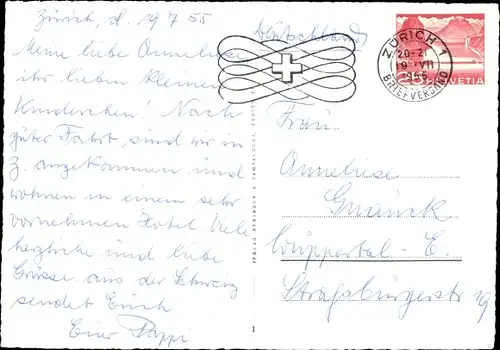 Zürich, d. 19 7 55
Meine liebe Anneliese
ihr lieben kleinen
Kinderchen! Nach
guter Fahrt sind wir in
Z. angekommen und
wohnen in einem sehr
vornehmen Hotel Viele
herzliche und liebe
Grüsse aus der Schweiz
sendet Euch
Euer Pappi
Deutschland
ZÜRICH 1
20-21
19. VII
1955
BRIEFVERSAND
HELVETIA
Frau
Anneliese
Wuppertal-E.
Straßburgerstr 19